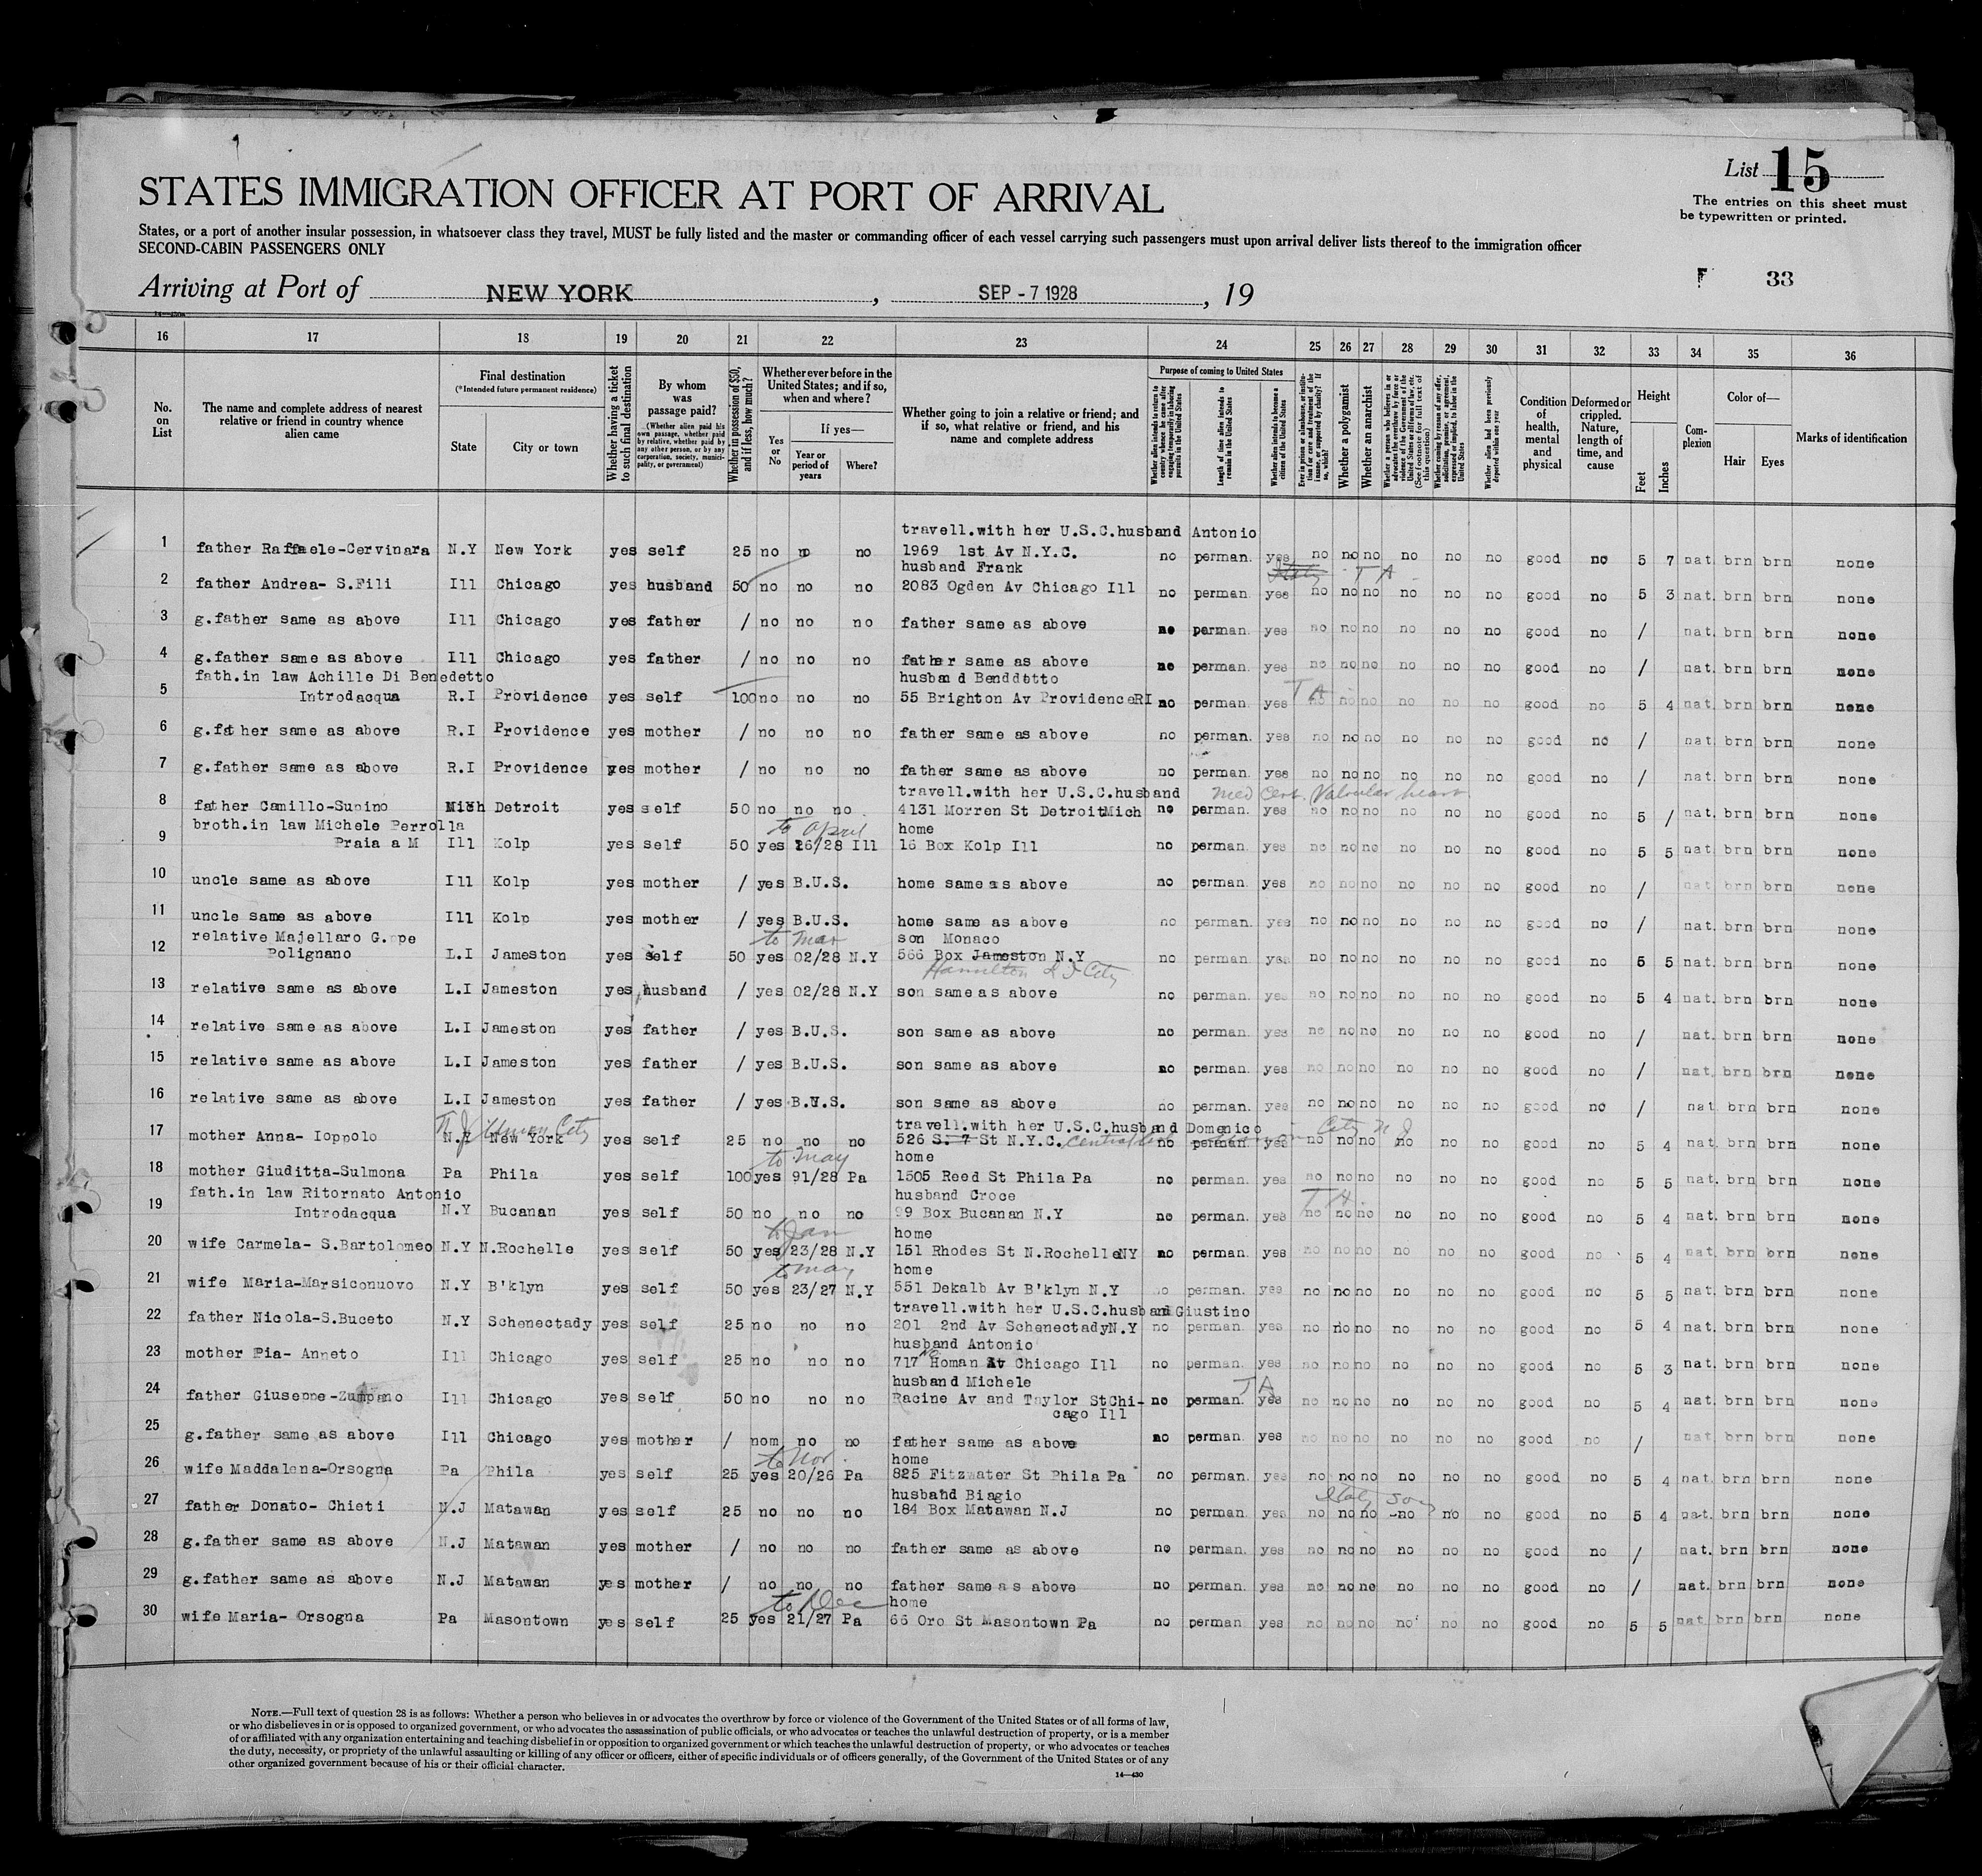 List 15
The entries on this sheet must
be typewritten or printed.
STATES IMMIGRATION OFFICER AT PORT OF ARRIVAL
States, or a port of another insular possession, in whatsoever class they travel, MUST be fully listed and the master or commanding officer of each vessel carrying such passengers must upon arrival deliver lists thereof to the immigration officer
SECOND-CABIN PASSENGERS ONLY
33
Arriving at Port of NEW YORK, SEP - 7 1928, 19
16 17 18 19 20 21 22 23 24 25 26 27 28 29 30 31 32 33 34 35 36
No. on List
The name and complete address of nearest relative or friend in country whence alien came
Final destination
(*Intended future permanent residence)
State
City or town
Whether having a ticket to such final destination
By whom was passage paid?
(Whether alien paid his own passage, whether paid by relative, whether paid by any other person, or by any corporation, society, municipality, or government)
Whether in possession of $50, and if less, how much?
Whether ever before in the United States; and if so, when and where?
Yes or No
If yes—
Year or period of years
Where?
Whether going to join a relative or friend; and if so, what relative or friend, and his name and complete address
Purpose of coming to United States
Whether alien intends to return to country whence he came after engaging temporarily in laboring pursuits in the United States
Length of time alien intends to remain in the United States
Whether alien intends to become a citizen of the United States
Ever in prison or almshouse, or institution for care and treatment of the insane, or supported by charity? If so, which?
Whether a polygamist
Whether an anarchist
Whether a person who believes in or advocates the overthrow by force or violence of the Government of the United States or all forms of law, etc. (See footnote for full text of this question)
Whether coming by reason of any offer, solicitation, promise, or agreement, expressed or implied, to labor in the United States
Whether alien had been previously deported within one year
Condition of health, mental and physical
Deformed or crippled. Nature, length of time, and cause
Height
Feet
Inches
Complexion
Color of—
Hair
Eyes
Marks of identification
travell.with her U.S.C.husband Antonio
1 father Raffaele-Cervinara N.Y New York yes self 25 no no no 1969 1st Av N.Y.C. no perman. yes no no no no no no good no 5 7 nat. brn brn none
husband Frank
Italy T A
2 father Andrea- S.Fili Ill Chicago yes husband 50 no no no 2083 Ogden Av Chicago Ill no perman. yes no no no no no no good no 5 3 nat. brn brn none
3 g.father same as above Ill Chicago yes father / no no no father same as above no perman. yes no no no no no no good no / nat. brn brn none
4 g.father same as above Ill Chicago yes father / no no no father same as above no perman. yes no no no no no no good no / nat. brn brn none
fath.in law Achille Di Benedetto husband Benddetto
T A
5 Introdacqua R.I Providence yes self 100 no no no 55 Brighton Av Providence RI no perman. yes no no no no no no good no 5 4 nat. brn brn none
6 g.father same as above R.I Providence yes mother / no no no father same as above no perman. yes no no no no no no good no / nat. brn brn none
7 g.father same as above R.I Providence yes mother / no no no father same as above no perman. yes no no no no no no good no / nat. brn brn none
travell.with her U.S.C.husband Med Cert. Valvular heart
8 father Camillo-Supino Mich Detroit yes self 50 no no no 4131 Morren St Detroit Mich no perman. yes no no no no no no good no 5 / nat. brn brn none
broth.in law Michele Perrolla to April home
9 Praia a M Ill Kolp yes self 50 yes 26/28 Ill 16 Box Kolp Ill no perman. yes no no no no no no good no 5 5 nat. brn brn none
10 uncle same as above Ill Kolp yes mother / yes B.U.S. home same as above no perman. yes no no no no no no good no / nat. brn brn none
11 uncle same as above Ill Kolp yes mother / yes B.U.S. home same as above no perman. yes no no no no no no good no / nat. brn brn none
relative Majellaro G. pe to Mar son Monaco
12 Polignano L.I Jameston yes self 50 yes 02/28 N.Y 566 Box Jameston N.Y no perman. yes no no no no no no good no 5 5 nat. brn brn none
Hamilton L I City
13 relative same as above L.I Jameston yes husband / yes 02/28 N.Y son same as above no perman. yes no no no no no no good no 5 4 nat. brn brn none
14 relative same as above L.I Jameston yes father / yes B.U.S. son same as above no perman. yes no no no no no no good no / nat. brn brn none
15 relative same as above L.I Jameston yes father / yes B.U.S. son same as above no perman. yes no no no no no no good no / nat. brn brn none
16 relative same as above L.I Jameston yes father / yes B.U.S. son same as above no perman. yes no no no no no no good no / nat brn brn none
N J Union City travell.with her U.S.C.husband Domenico City N J
17 mother Anna- Ioppolo N.Y New York yes self 25 no no no 526 S. 7 St N.Y.C. Central no perman. yes no no no no no no good no 5 4 nat. brn brn none
to May home
18 mother Giuditta-Sulmona Pa Phila yes self 100 yes 91/28 Pa 1505 Reed St Phila Pa no perman. yes no no no no no no good no 5 5 nat. brn brn none
fath.in law Ritornato Antonio husband Croce T A.
19 Introdacqua N.Y Bucanan yes self 50 no no no 99 Box Bucanan N.Y no perman. yes no no no no no no good no 5 4 nat. brn brn none
to Jan home
20 wife Carmela- S.Bartolomeo N.Y N.Rochelle yes self 50 yes 23/28 N.Y 151 Rhodes St N.Rochelle NY no perman. yes no no no no no no good no 5 4 nat. brn brn none
to may home
21 wife Maria-Marsiconuovo N.Y B'klyn yes self 50 yes 23/27 N.Y 551 Dekalb Av B'klyn N.Y no perman. yes no no no no no no good no 5 5 nat. brn brn none
travell.with her U.S.C.husband Giustino
22 father Nicola-S.Buceto N.Y Schenectady yes self 25 no no no 201 2nd Av Schenectady N.Y no perman. yes no no no no no no good no 5 4 nat. brn brn none
husband Antonio
23 mother Pia- Anneto Ill Chicago yes self 25 no no no 717 No Homan Av Chicago Ill no perman. yes no no no no no no good no 5 3 nat. brn brn none
husband Michele T A
24 father Giuseppe-Zumpano Ill Chicago yes self 50 no no no Racine Av and Taylor St Chi- no perman. yes no no no no no no good no 5 4 nat. brn brn none
cago Ill
25 g.father same as above Ill Chicago yes mother / nom no no father same as above no perman. yes no no no no no no good no / nat. brn brn none
to Nov. home
26 wife Maddalena-Orsogna Pa Phila yes self 25 yes 20/26 Pa 825 Fitzwater St Phila Pa no perman. yes no no no no no no good no 5 4 nat. brn brn none
husband Biagio Italy
27 father Donato- Chieti N.J Matawan yes self 25 no no no 184 Box Matawan N.J no perman. yes no no no no no no good no 5 4 nat. brn brn none
28 g.father same as above N.J Matawan yes mother / no no no father same as above no perman. yes no no no no no no good no / nat. brn brn none
29 g.father same as above N.J Matawan yes mother / no no no father same as above no perman. yes no no no no no no good no / nat. brn brn none
to Dec home
30 wife Maria- Orsogna Pa Masontown yes self 25 yes 21/27 Pa 66 Oro St Masontown Pa no perman yes no no no no no no good no 5 5 nat brn brn none
NOTE.—Full text of question 28 is as follows: Whether a person who believes in or advocates the overthrow by force or violence of the Government of the United States or of all forms of law,
or who disbelieves in or is opposed to organized government, or who advocates the assassination of public officials, or who advocates or teaches the unlawful destruction of property, or is a member
of or affiliated with any organization entertaining and teaching disbelief in or opposition to organized government or which teaches the unlawful destruction of property, or who advocates or teaches
the duty, necessity, or propriety of the unlawful assaulting or killing of any officer or officers, either of specific individuals or of officers generally, of the Government of the United States or of any
other organized government because of his or their official character.
14—430